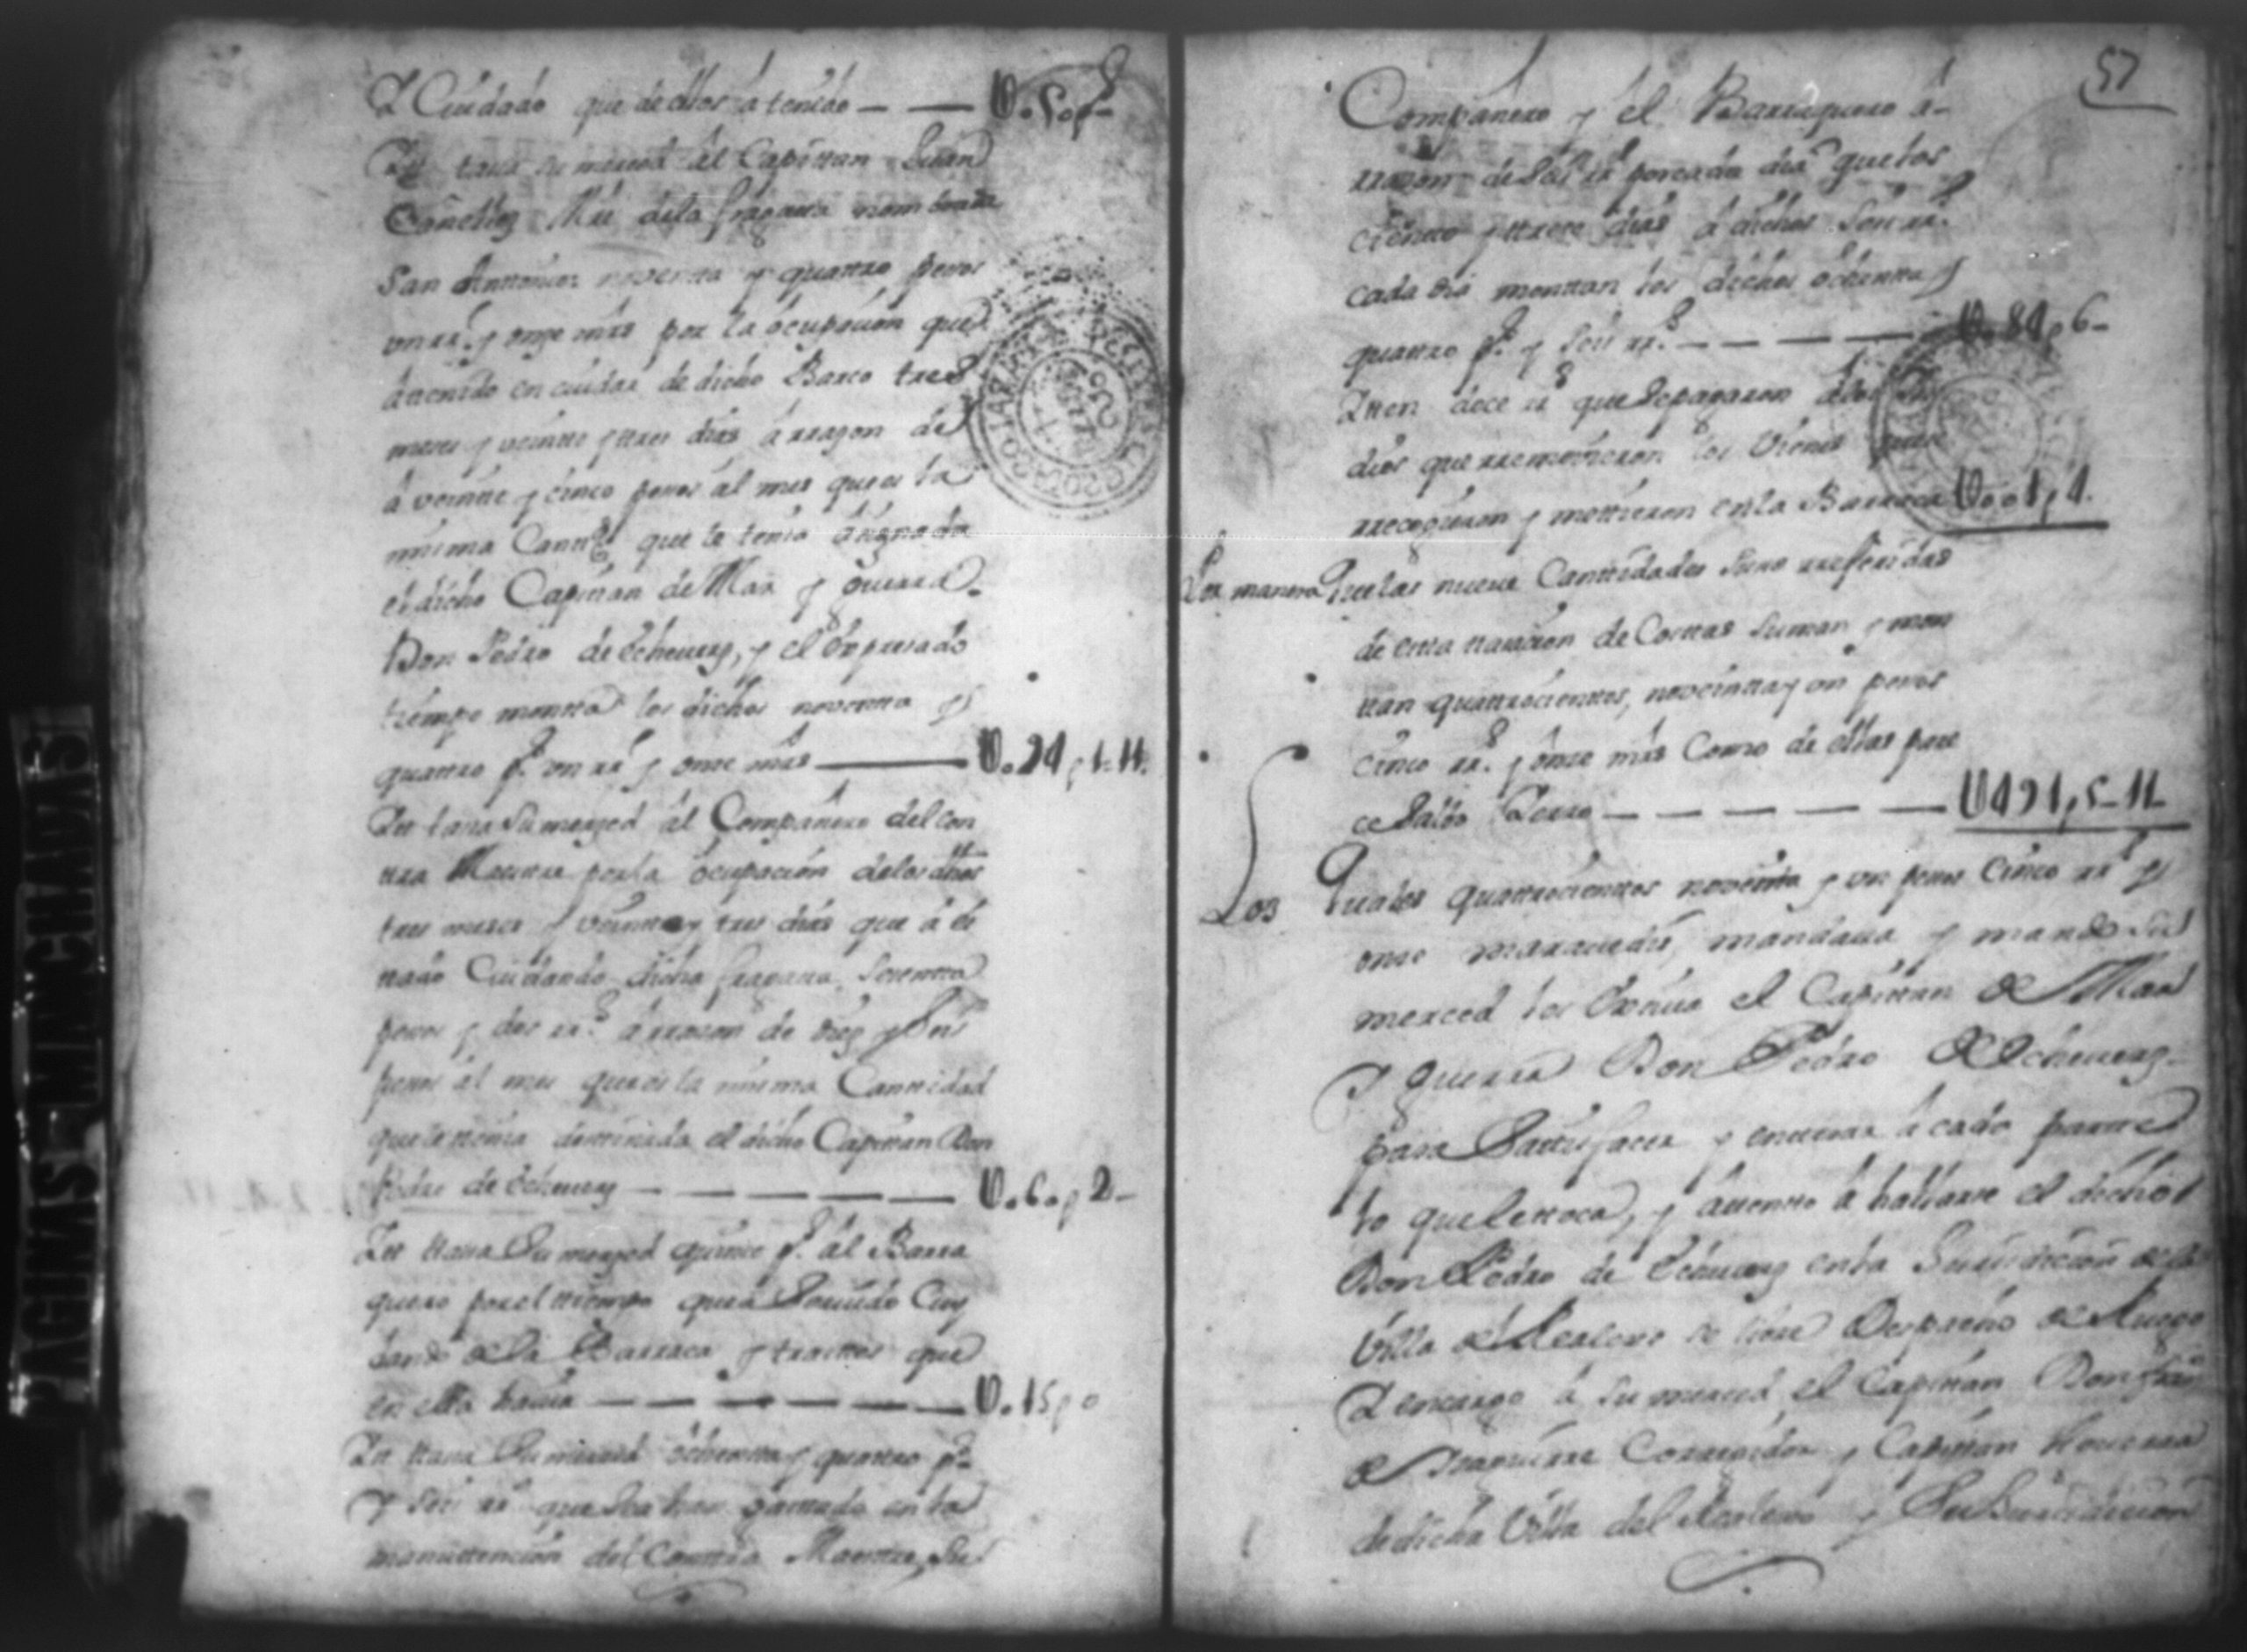 Y Cuidado que de ellos a tenido — — U.50p
Itt tasa su merced al Capittan Juan
Gonelles Mre de la fragatta nombrada
San Anttonio noventta y quattro pesos
un rr.l y onze mrs por la ocupacion que
à tenido en cuidar de dicho Barco tres
meses y veintte y tres dias à rrazon de
à veintte y cinco pesos al mes que es la
misma Cantt.d que le tenia asignada
el dicho Capitan de Mar y guerra
Don Pedro de Echeverz, y el expresado
tiempo montta los dichos noventta y
quattro p.s un rr.l y onse mrs — U.94p1-11.
Itt tasa Su merzed al Compañero del con
tra Maestre por la ocupacion de los dhos
tres meses y veintte y tres dias que à es
tado Cuidando dicha fragatta, Sesentta
pesos y dos rr.s à rrazon de diez y Seis
pesos al mes que es la misma Canttidad
que le ttenia desttinada el dicho Capittan Don
Pedro de Echeverz — — — — — U.60p2-
Itt ttasa Su merzed quince p.s al Barra
quero por el ttiempo que à Seruido Cuy
dando de la Barraca y trasttos que
en ella hauia — — — — — U.15p0
Itt ttasa Su merced ochentta y quattro p.s
Y seis rr.s que Se à han gasttado en la
manuttencion del Conttra Maesttre, Su
57
Compañero y el Barraquero à
rrazon de Seis rr.s por cada dia que los
ciento y ttrece dias à dichos Seis rr.s
cada dia monttan los dichos ochentta y
quattro p.s y Seis rr.s — — — — — U.84p6-
Itten doce rr.s que Se pagaron à los
dias que rremovieron los Vienes que
rrecogieron y mettieron en la Barraca U..1p4.
Por manera Que las nueue Canttidades Suso rreferidas
de esta ttasacion de Costtas Suman y mon
ttan quattrocienttos, noventta y un pesos
cinco rr.s y onse mrs Como de ellas pare
ce Salbo Yerro — — — — — U491p5-11-
Los Quales quattrocienttos noventta y un pesos Cinco rr.s y
onse marauedis, mandaua y mando Su
merced los exsiua el Capittan de Mar
Y guerra Don Pedro de Echeverz
para Sattisfacer y entterar à cada partte
lo que le ttoca, y attentto à hallarse el dicho
Don Pedro de Echeverz en la Jurisdiccion de la
Villa del Realexo se libre Despacho de Ruego
Y encargo à Su merced el Capittan Don
de Corregidor y Capittan
de dicha Villa del Realexo y Su Jurisdiccion